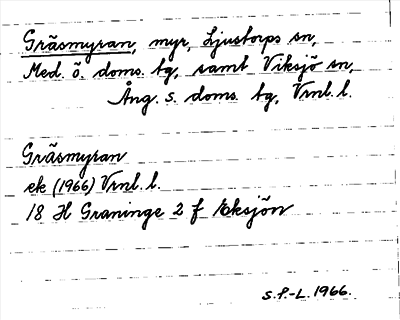 Gräsmyran, myr, Ljustorps sn,
Med. ö. doms. tg, samt Viksjö sn,
Ång. s. doms. tg, Vrnl. l.
Gräsmyran
ek (1966) Vrnl. l.
18 H Graninge 2 f Eksjön
S.P.-L. 1966.